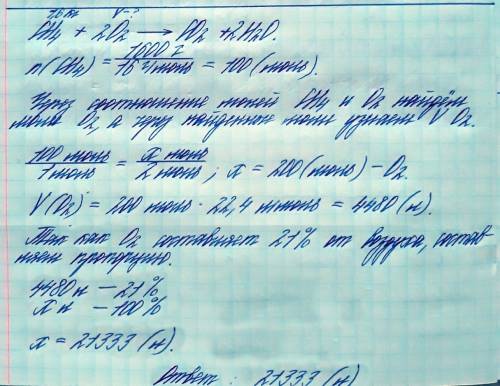 1,6 кг V-?
CH₄ + 2O₂ → CO₂ + 2H₂O.
n(CH₄) = 1600 г / 16 г/моль = 100 (моль).
Через соотношение молей CH₄ и O₂ найдём
моли O₂, а через найденные моли узнаем V O₂.
100 моль / 1 моль = x моль / 2 моль; x = 200 (моль) - O₂.
V(O₂) = 200 моль · 22,4 л/моль = 4480 (л).
Так как O₂ составляет 21% от воздуха, состав-
ляем пропорцию.
4480 л - 21%
x л - 100%
x = 21333 (л).
Ответ: 21333 (л)